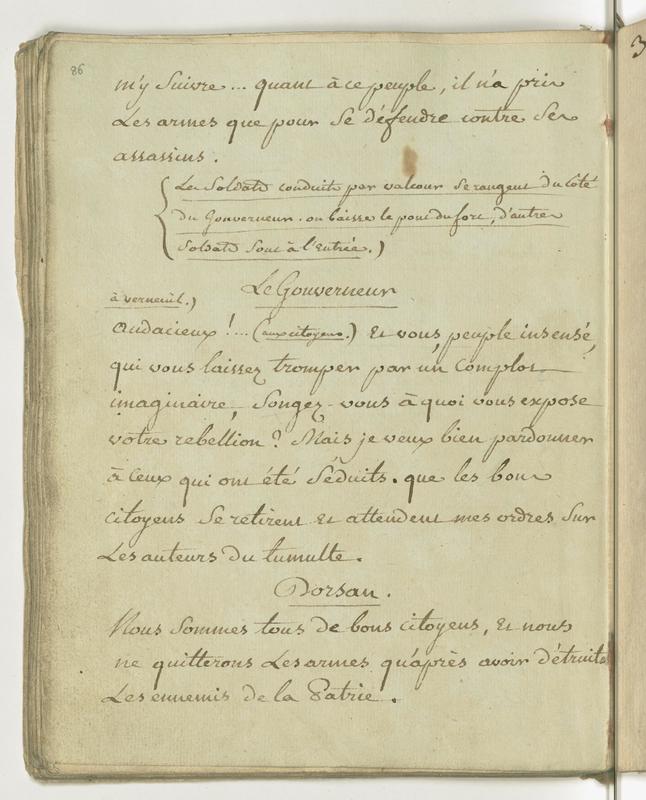 86
m'y Suivre... quant à ce peuple, il n'a pris
Les armes que pour Se défendre contre Ses
assassins.
(Les Soldats conduits par valcour Se rangent du Côté
du Gouverneur. on baisse le pont du fort, d'autres
Soldats Sont à l'entrée.)
Le Gouverneur
à verneuil.)
audacieux !... (aux citoyens.) Et vous, peuple insensé,
qui vous laissez tromper par un Complot
imaginaire, Songez-vous à quoi vous expose
votre rebellion ? Mais je veux bien pardonner
à Ceux qui ont été Séduits. que les bons
Citoyens Se retirent Et attendent mes ordres Sur
Les auteurs du tumulte.
Dorsan.
Nous Sommes tous de bons Citoyens, Et nous
ne quitterons Les armes qu'après avoir détruits
Les ennemis de la Patrie.
3